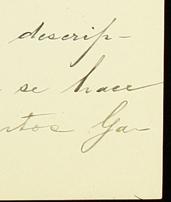 descrip-
se hace
ntos Ga-